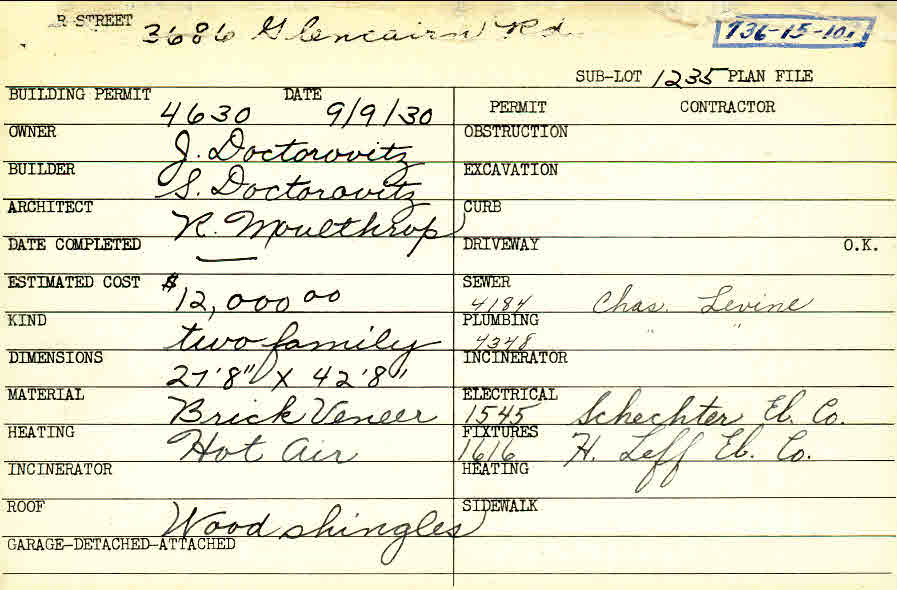 R STREET 3686 Glencairn Rd.
736-15-101
SUB-LOT 1235 PLAN FILE
BUILDING PERMIT 4630 DATE 9/9/30
PERMIT CONTRACTOR
OWNER J. Doctorovitz
OBSTRUCTION
BUILDER S. Doctorovitz
EXCAVATION
ARCHITECT R. Moulthrop
CURB
DATE COMPLETED —
DRIVEWAY O.K.
ESTIMATED COST $12,000 00
SEWER 4184 Chas. Levine
KIND two family
PLUMBING 4348 " "
DIMENSIONS 27'8" X 42'8"
INCINERATOR
MATERIAL Brick Veneer
ELECTRICAL 1545 Schechter El. Co.
HEATING Hot Air
FIXTURES 1616 H. Leff El. Co.
INCINERATOR
HEATING
ROOF Wood shingles
SIDEWALK
GARAGE-DETACHED-ATTACHED